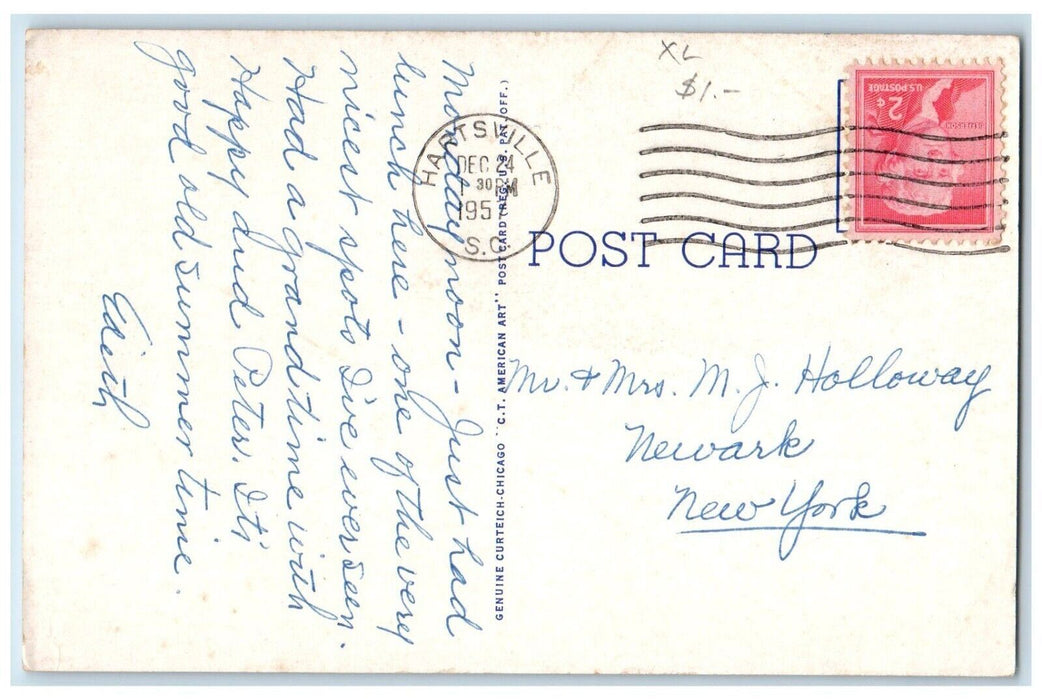 XL
$1.-
2¢
U.S. POSTAGE
JEFFERSON
HARTSVILLE
DEC 24
30 PM
195
S.C.
POST CARD
GENUINE CURTEICH-CHICAGO "C.T. AMERICAN ART" POST CARD (REG. U.S. PAT. OFF.)
Monday noon - Just had
lunch here - one of the very
nicest spots I've ever seen.
Had a grand time with
Happy and Peter. It's
good old summer time.
Edith
Mr. & Mrs. M. J. Holloway
Newark
New York